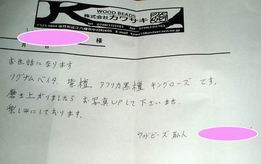 WOOD BEADS
株式会社 カワサキ
様
お世話になります
リグナムバイタ、紫檀、アフリカ黒檀、キングローズ です。
磨き上がりましたら お写真UPして下さいませ。
楽しみにしております。
ウッドビーズ